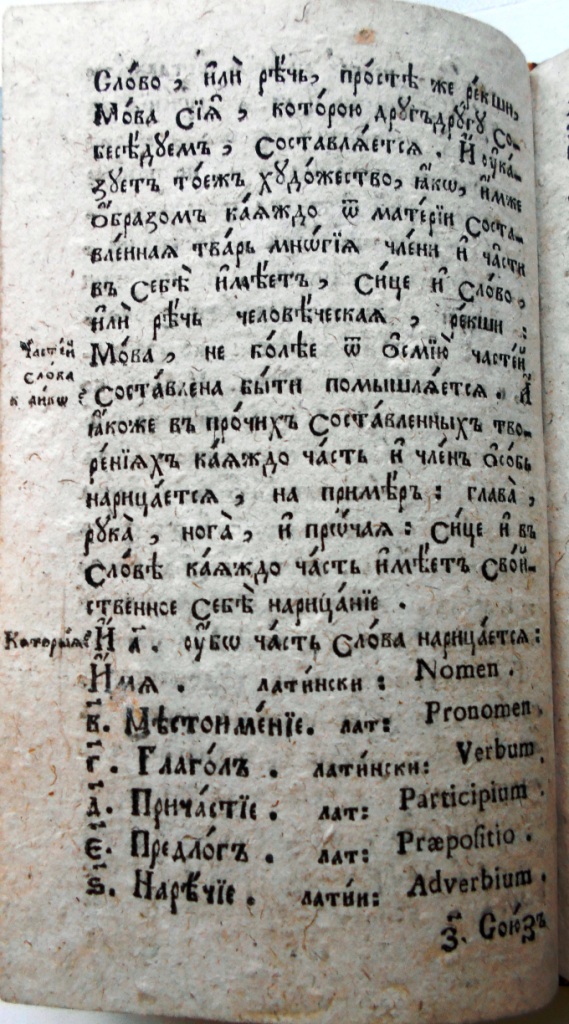 Сло́во, и҆лѝ рѣ́чь, про́стѣ же ре́кши,
Мо́ва Сїѧ̀, кото́рою дрꙋгъдрꙋ́гꙋ Со-
бесѣ́дꙋемъ, Составлѧ́ется. И҆ оу҆ка́-
зꙋетъ то́ежъ хꙋдо́жество, ꙗ҆́кѡ, и҆́мже
ѻ҆́бразомъ ка́ѧждо ѿ мате́рїи Соста-
вле́нная тва́рь мнѡ́гїя чле́ни и҆ ча́сти
въ Себѣ̀ и҆мѣ́етъ, Си́це и҆ Сло́во,
и҆лѝ рѣ́чь человѣ́ческая, ре́кши:
Часте́й
сло́ва
Мо́ва, не ко́лѣе ѿ ѻ҆смїю̀ часте́й
Соста́влена бы́ти помышлѧ́ется. А҆
ꙗ҆́коже въ про́чихъ Соста́вленныхъ тво-
ре́нїяхъ ка́ѧждо ча́сть и҆ чле́нъ ѻ҆со́бь
нарица́ется, на примѣ́ръ: глава̀,
рꙋка̀, нога̀, и҆ прѡ́чая: Си́це и҆ въ
Сло́вѣ ка́ѧждо ча́сть и҆мѣ́етъ Сво́й-
ственное Себѣ̀ нарица́нїе.
Которы́я
И҆ а҃. оу҆́бѡ ча́сть Сло́ва нарица́ется:
И҆́мя. лати́нски: Nomen.
в҃. Мѣстоиме́нїе. лат: Pronomen.
г҃. Глаго́лъ. лати́нски: Verbum.
д҃. Прича́стїе. лат: Participium.
є҃. Предло́гъ. лат: Præpoſitio.
ѕ҃. Нарѣ́чїе. лати́н: Adverbium.
з҃. Сою́зъ